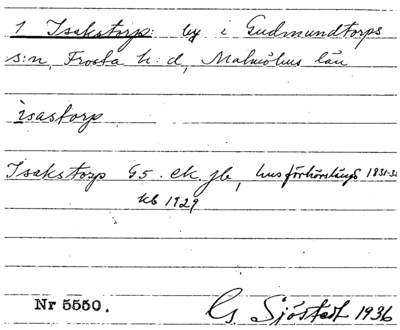 1 Isakstorp: by i Gudmundtorps
s:n, Frosta h:d, Malmöhus län
isastorp
Isakstorp G5. ek. jb, husförhörslängd 1831-3
kb 1929
Nr 5550.
G. Sjöstedt 1936